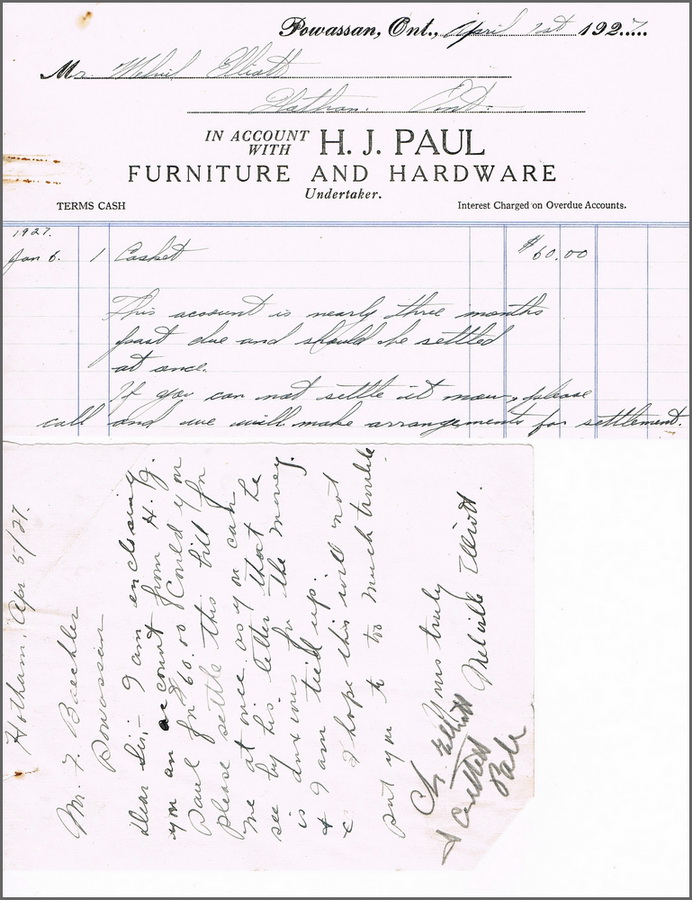 Powassan, Ont., April 1st 1927
Mr. Melvil Elliott
Ont.
IN ACCOUNT WITH H. J. PAUL
FURNITURE AND HARDWARE
Undertaker.
TERMS CASH Interest Charged on Overdue Accounts.
1927.
Jan 6. 1 Casket $60.00
This account is nearly three months
past due and should be settled
at once.
If you can not settle it now, please
call and we will make arrangements for settlement.
Hotham, Apr 5/27.
Mr. F. Baechler
Powassan
Dear Sir;- I am enclosing
you an account from H. J.
Paul for $60.00 Could you
please settle this bill for
me at once as you can
see by his letter that he
is anxious for the money.
& I am tied up.
I hope this will not
put you to too much trouble
Yours truly
Melville Elliott.
Ch. Elliott